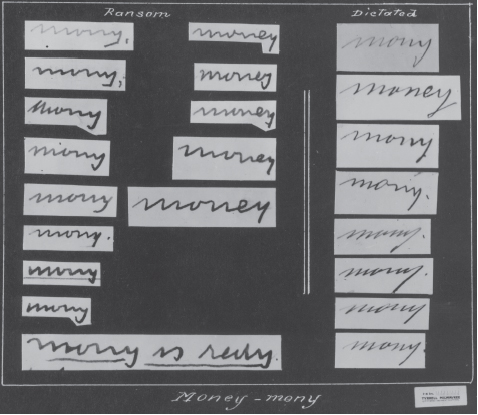 Ransom
mony,
mony;
mony
mony
mony
mony.
mony
mony
mony is redy.
money
money
money
money
money
Dictated
mony
money
mony
mony.
mony.
mony.
mony
mony.
Money - mony